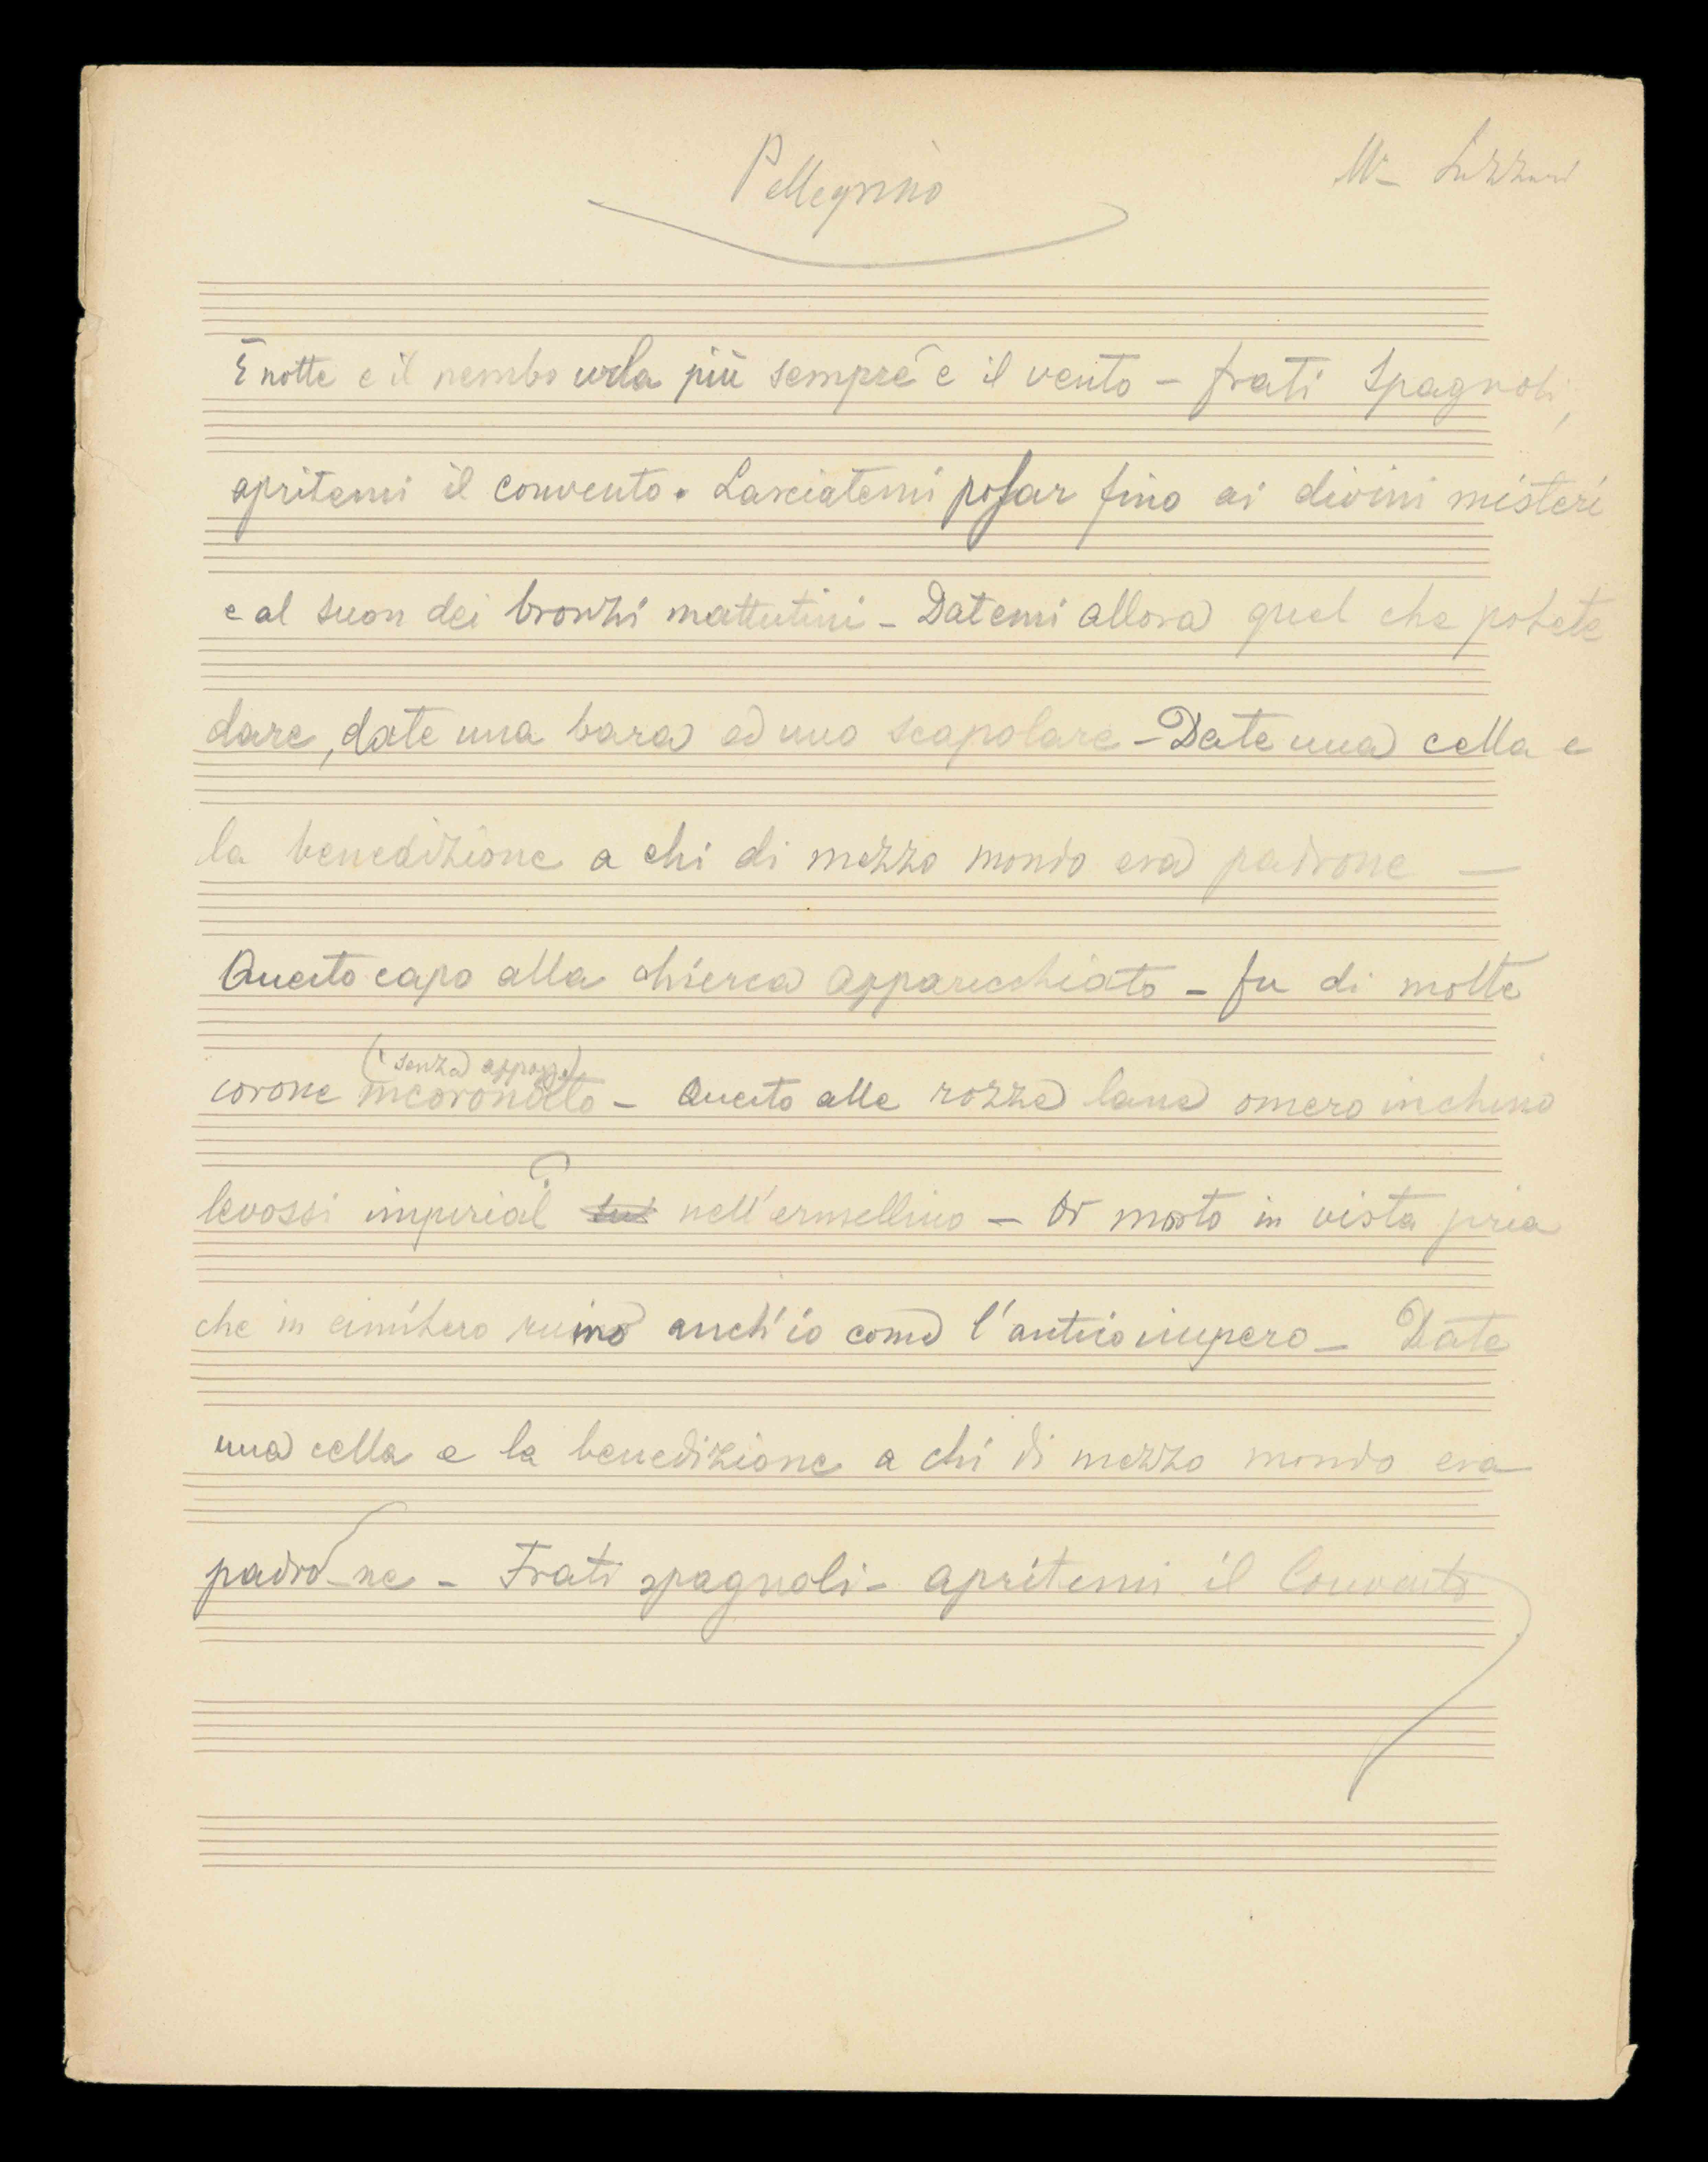 Pellegrino
È notte e il nembo urla più sempre e il vento - frati Spagnoli,
apritemi il convento. Lasciatemi posar fino ai divini misteri
e al suon dei bronzi mattutini - Datemi allora quel che potete
dare, date una bara ed uno scapolare - Date una cella e
la benedizione a chi di mezzo mondo era padrone —
Questo capo alla chierca apparecchiato - fu di molte
(senza appogg)
corone incoronato - Questo alle rozze lane omero inchino
levossi imperial nell'ermellino - Or morto in vista pria
che in cimitero ruino anch'io come l'antico impero - Date
una cella e la benedizione a chi di mezzo mondo era
padro-ne - Frati spagnoli - apritemi il Convento